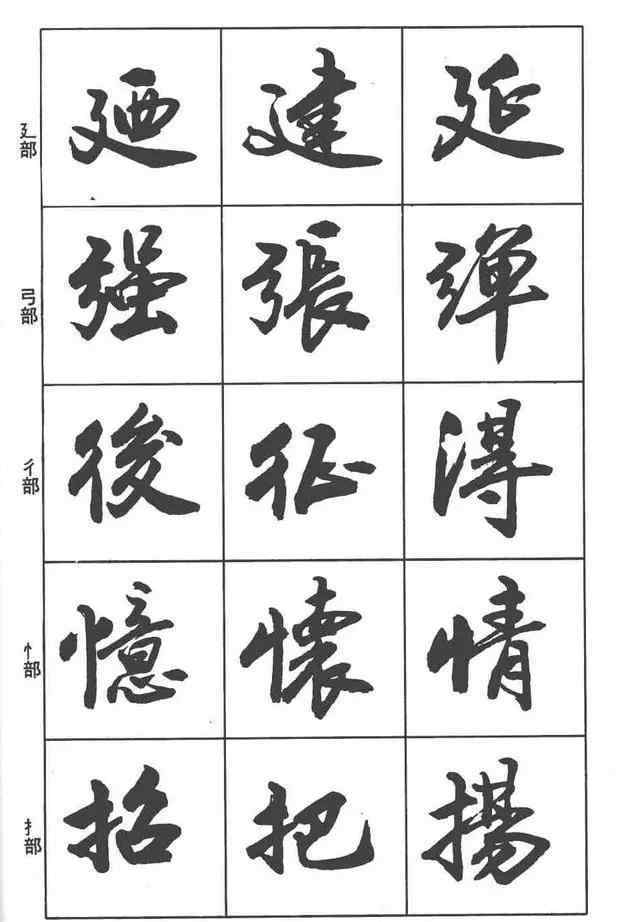 廴部 廼 建 延
弓部 强 張 彈
彳部 後 征 得
忄部 憶 懷 情
扌部 招 把 揚